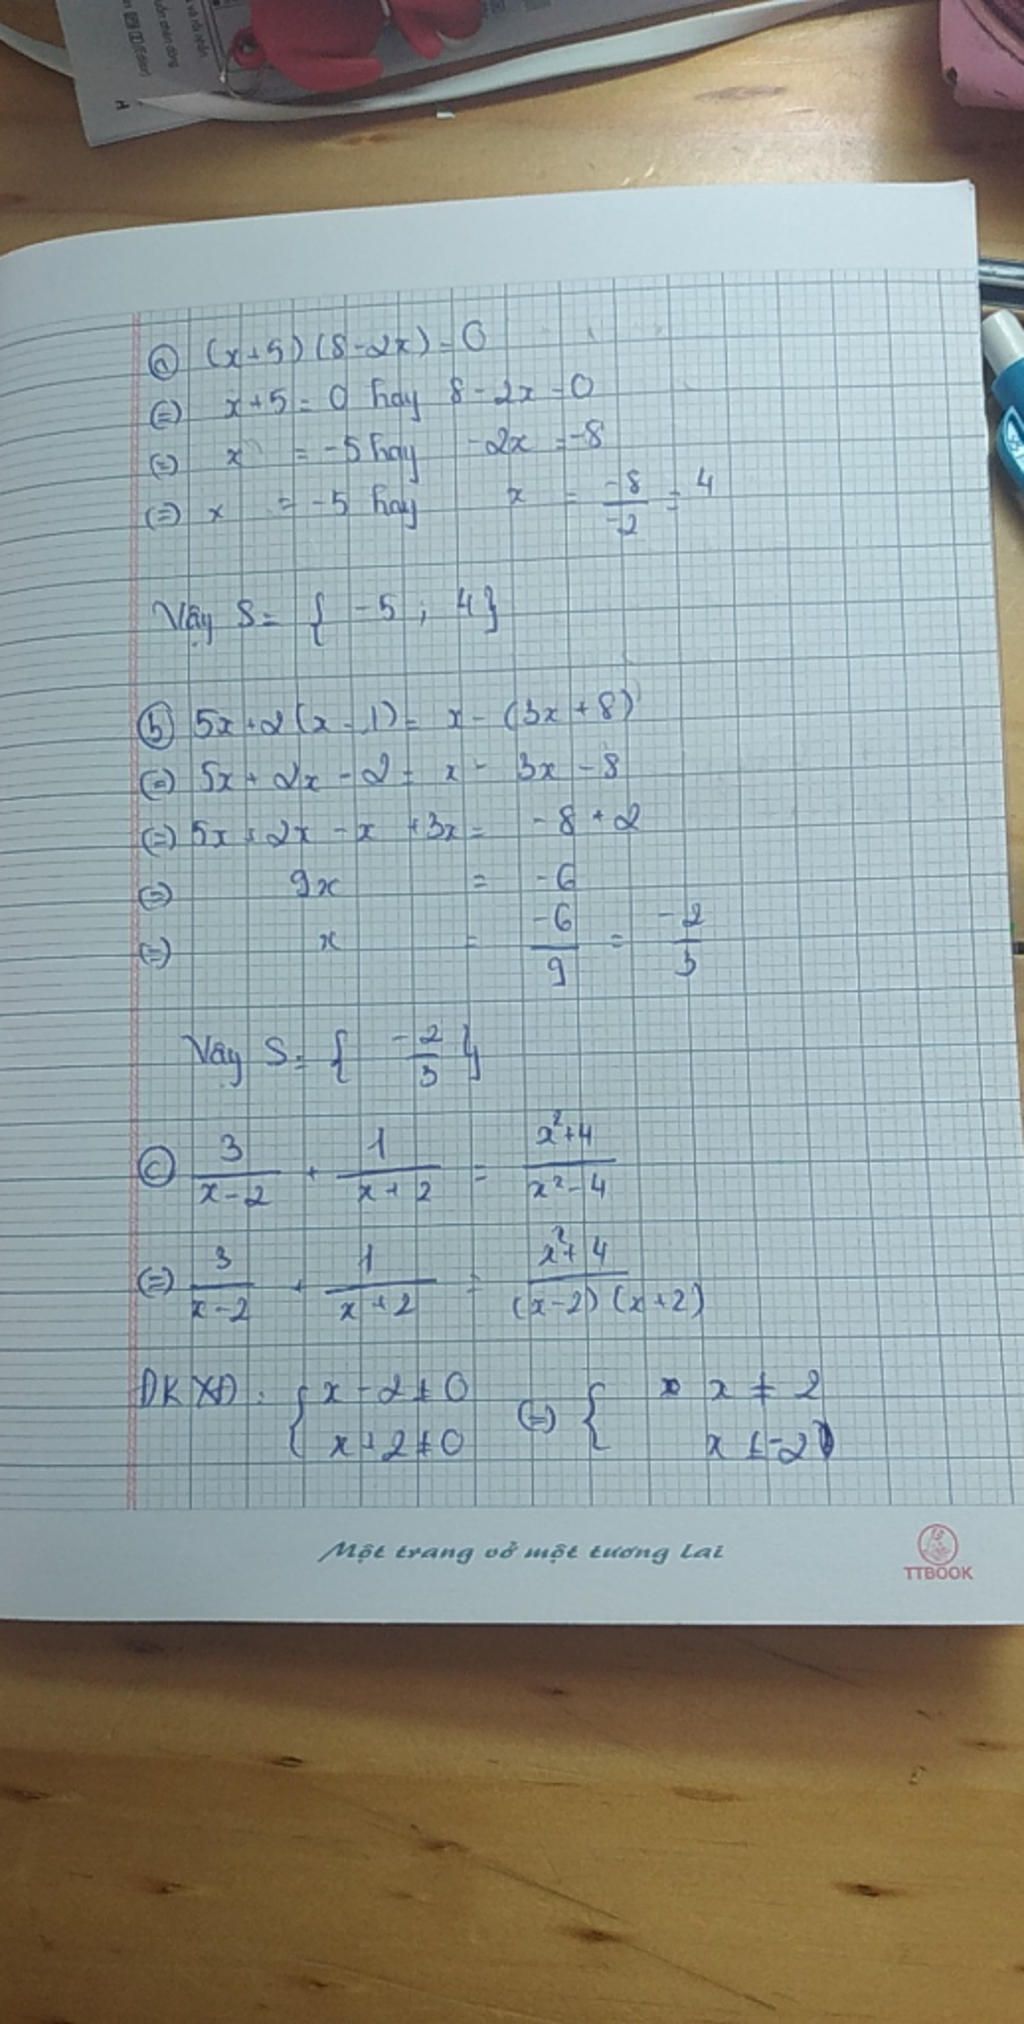 ⓐ (x+5)(8-2x)=0
(=) x+5=0 hay 8-2x=0
(=) x = -5 hay -2x=-8
(=) x = -5 hay x = \frac{-8}{-2} = 4
Vậy S= { -5 ; 4}
ⓑ 5x+2(x-1)= x-(3x+8)
(=) 5x+2x-2= x-3x-8
(=) 5x+2x-x+3x= -8+2
(=) 9x = -6
(=) x = \frac{-6}{9} = \frac{-2}{3}
Vậy S= { \frac{-2}{3} }
ⓒ \frac{3}{x-2} + \frac{1}{x+2} = \frac{x²+4}{x²-4}
(=) \frac{3}{x-2} + \frac{1}{x+2} = \frac{x²+4}{(x-2)(x+2)}
ĐKXĐ: { x-2≠0 (=) { x≠2
x+2≠0 x≠-2
Một trang vở một tương lai
TTBOOK